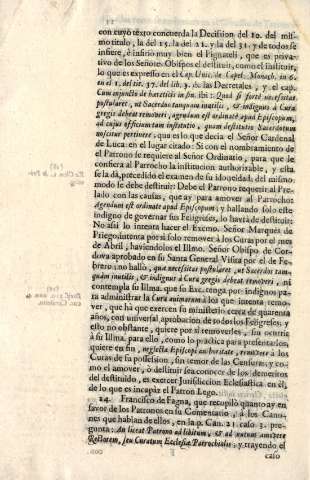 con cuyo texto concuerda la Decision del 10. del mis-
mo titulo, la del 15. la del 21. y la del 31. y de todos se
infiere, è infirió muy bien el Pignateli, que es priva-
tivo de los Señores Obispos el destituir, como el instituir,
lo que es expresso en el Cap. Unic. de Capel. Monach. in 6.
en el 1. del tit. 37. del lib. 3. de las Decretales, y el cap.
Cum ex injuncto de hæreticis in fin. ibi: Quod si forte necessitas
postularet, ut Sacerdos tanquam inutilis, & indignus à Cura
gregis debeat removeri, agendum est ordinatè apud Episcopum,
ad cujus officium tam institutio, quam destitutio Sacerdotum
noscitur pertinere: que es lo que decia el Señor Cardenal
de Luca en el lugar citado: Si con el nombramiento de
el Patrono se requiere al Señor Ordinario, para que le
confiera al Parrocho la institucion authorizable, y esta
se la dà, precedido el examen de su idoneidad, del mismo
modo se debe destituir: Debe el Patrono requerir al Pre-
lado con las causas, que ay para amover al Parrocho:
agendum est ordinatè apud Episcopum; y hallando solo este
indigno de governar sus Feligreses, lo havrà de destituir:
No assi lo intenta hacer el Excmo. Señor Marquès de
Priego, intenta por sì solo remover à los Curas por el mes
de Abril, haviendolos el Ilmo. Señor Obispo de Cor-
dova aprobado en su Santa General Visita por el de Fe-
brero, no hallò, quæ necessitas postularet, ut Sacerdos tam-
quam inutilis, & indignus à Cura gregis debeat removeri, ni
contempla su Illma. que su Exc. tenga por indignos pa-
ra administrar la Cura animarum à los que intenta remo-
ver, que hà que exercen su ministerio cerca de quarenta
años, con universal aprobacion de todos los Feligreses: y
esto no obstante, quiere por sì removerles, sin ocurrir
à su Illma. para ello, como lo practica para presentarlos,
quiere en fin, neglecta Episcopi authoritate, removere à los
Curas de su possession, sin temor de las Censuras: y co-
mo el amover, ò destituir sea conocer de los demeritos
del destituido, es exercer Jurisdiccion Eclesiastica en èl,
de lo que es incapàz el Patron Lego.
24. Francisco de Fagna, que recopilò quanto ay en
favor de los Patronos en su Comentario, à los Cano-
nes que hablan de ellos, en la p. Can. 21. caso 3. pre-
gunta: An liceat Patrono ad libitum, & ad nutum amovere
Rectorem, seu Curatum Ecclesiæ Patrochialis: y trayendo el
caso